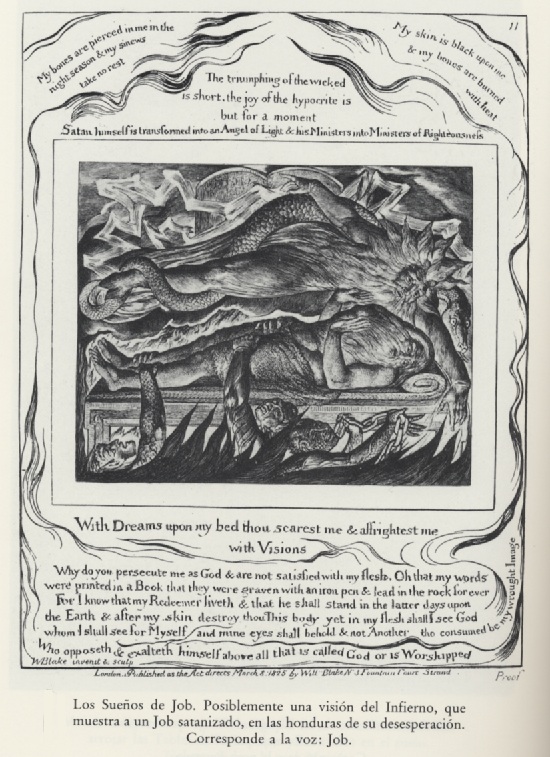 11
My bones are pierced in me in the
night season & my sinews
take no rest
My skin is black upon me
& my bones are burned
with heat
The triumphing of the wicked
is short, the joy of the hypocrite is
but for a moment
Satan himself is transformed into an Angel of Light & his Ministers into Ministers of Righteousness
With Dreams upon my bed thou scarest me & affrightest me
with Visions
Why do you persecute me as God & are not satisfied with my flesh. Oh that my words
were printed in a Book that they were graven with an iron pen & lead in the rock for ever
For I know that my Redeemer liveth & that he shall stand in the latter days upon
the Earth & after my skin destroy thou This body yet in my flesh shall I see God
whom I shall see for Myself and mine eyes shall behold & not Another tho consumed be
my wrought Image
Who opposeth & exalteth himself above all that is called God or is Worshipped
WBlake invenit & sculp
London. Published as the Act directs March 8: 1825 by Will Blake N 3 Fountain Court Strand
Proof
Los Sueños de Job. Posiblemente una visión del Infierno, que
muestra a un Job satanizado, en las honduras de su desesperación.
Corresponde a la voz: Job.